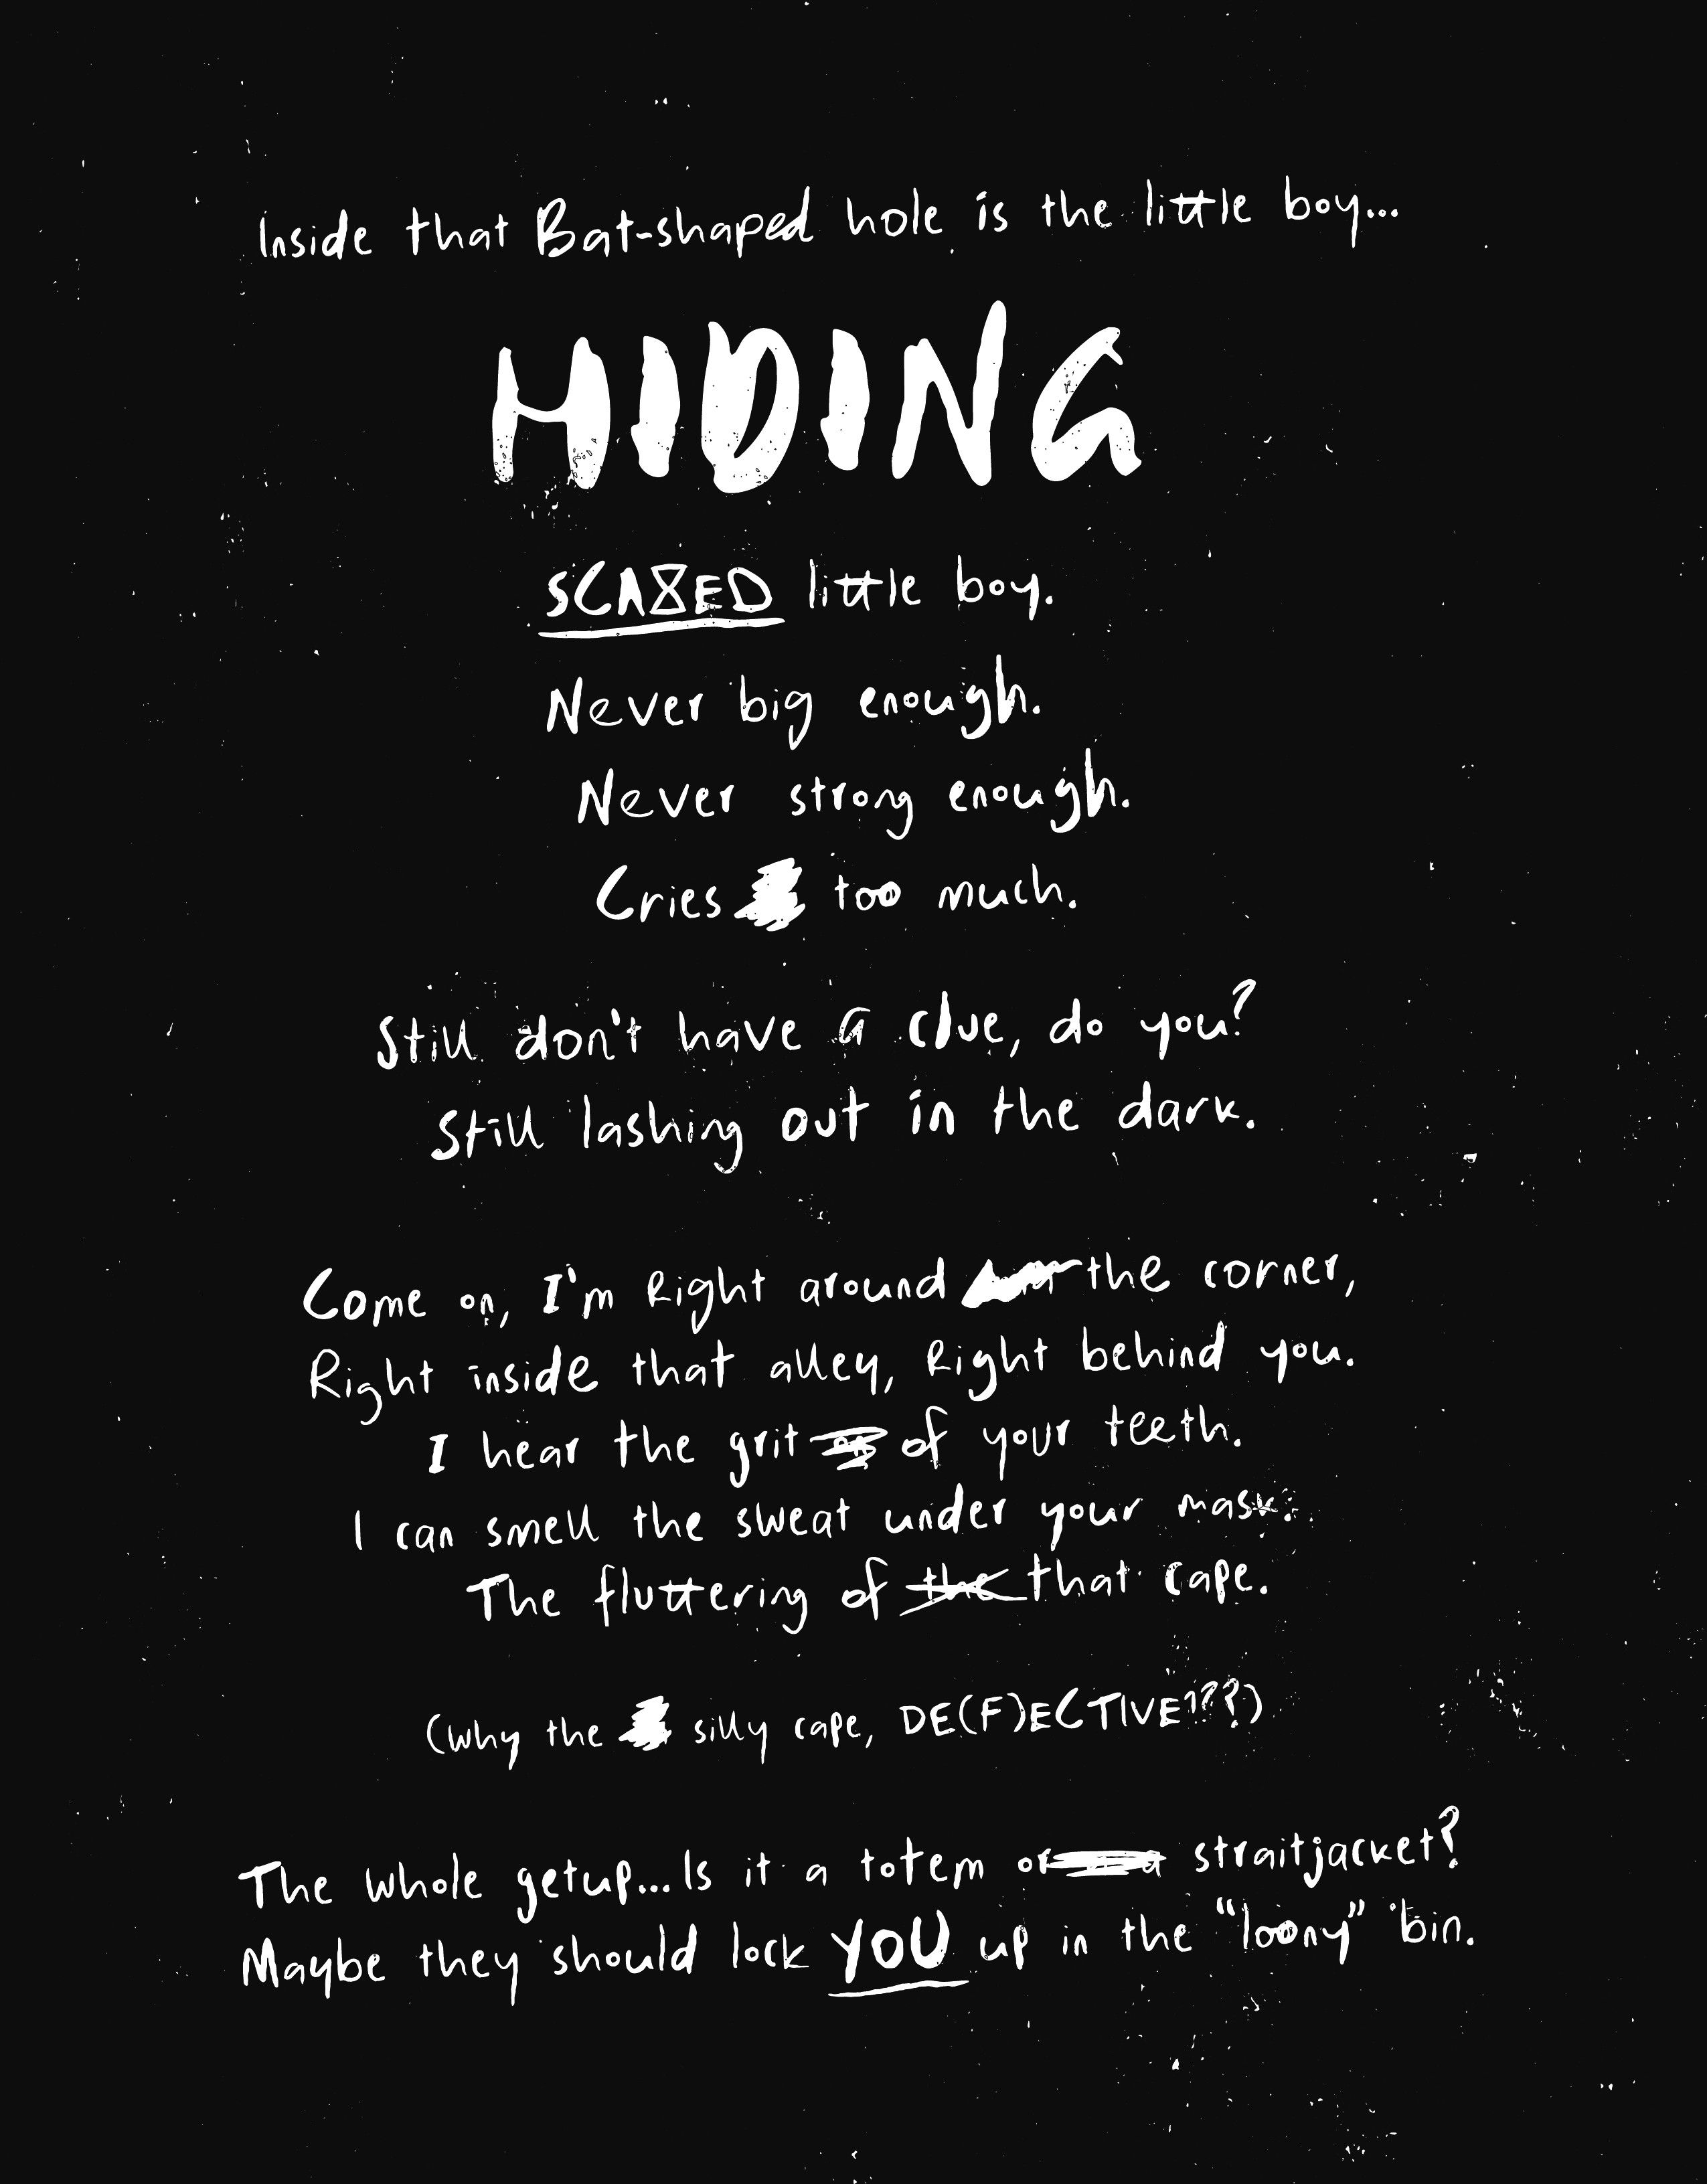 Inside that Bat-shaped hole is the little boy...
HIDING
SCARED little boy.
Never big enough.
Never strong enough.
Cries too much.
Still don't have a clue, do you?
Still lashing out in the dark.
Come on, I'm Right around the corner,
Right inside that alley, Right behind you.
I hear the grit of your teeth.
I can smell the sweat under your mask.
The fluttering of the that cape.
(Why the silly cape, DE(F)ECTIVE???)
The whole getup...Is it a totem or straitjacket?
Maybe they should lock YOU up in the "loony" bin.